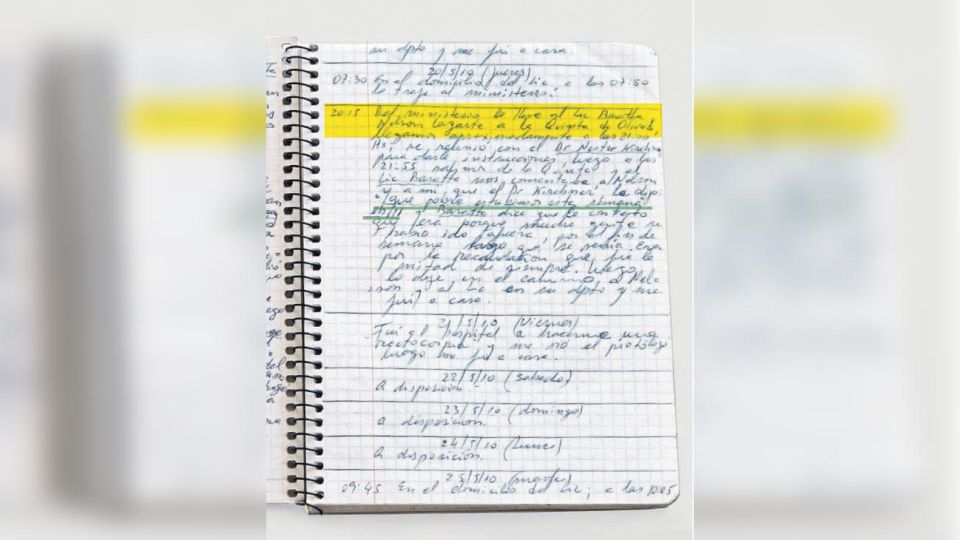 su dpto y me fui a casa.
20/5/10 (jueves)
07:30 En el domicilio del Lic, a las 07:50
lo traje al ministerio.
20:15 Del ministerio lo lleve al Lic Baratta
Nelson Lazarte a la Quinta de Olivos,
llegamos aproximadamente a las
Hs, se reunio con el Dr Nestor Kirchner
para darle instrucciones, luego a las
21:55 salimos de la Quinta y el
Lic Baratta nos comentaba a Nelson
y a mi, que el Dr Kirchner le dijo
¡que pobre estuvimos esta semana
y Baratta dice que le contesto
que era porque mucha gente se
habia ido afuera por el fin de
semana largo que se venia. Era
por la recaudacion que fue la
mitad de siempre. Luego
lo deje en el camino a Nel-
son y al Lic en su dpto y me
fui a casa.
21/5/10 (viernes)
Fui al hospital a hacerme una
y me vio el
luego me fui a casa.
22/5/10 (sabado)
a disposicion
23/5/10 (domingo)
a disposicion.
24/5/10 (lunes)
a disposicion.
25/5/10 (martes)
09:45 En el domicilio del Lic, a las